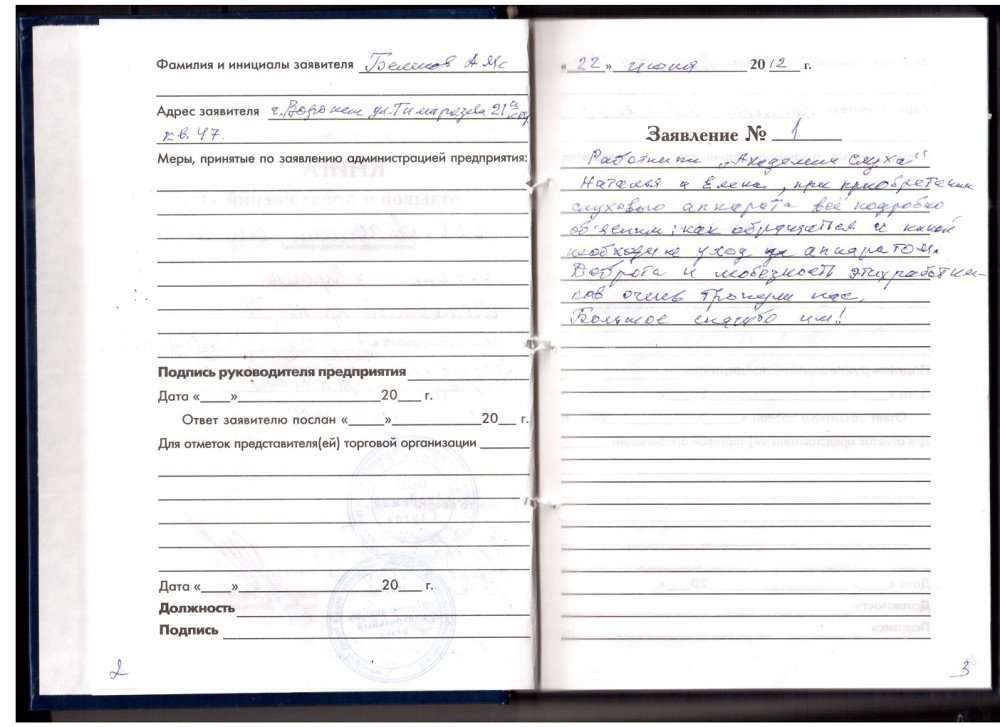 Фамилия и инициалы заявителя Беликов А
Адрес заявителя г. Воронеж ул. Тимирязева 21а
кв. 47.
Меры, принятые по заявлению администрацией предприятия:
Подпись руководителя предприятия
Дата « » 20 г.
Ответ заявителю послан « » 20 г.
Для отметок представителя(ей) торговой организации
Дата « » 20 г.
Должность
Подпись
2
« 22 » июня 2012 г.
Заявление № 1
Работники „Академии слуха"
Наталья и Елена, при приобретении
слухового аппарата всё подробно
об'яснили: как обращаться и какой
необходим уход за аппаратом.
Доброта и любезность этих работни-
ков очень тронули нас.
Большое спасибо им!
3